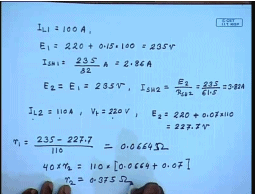 I_L1 = 100 A,
E_1 = 220 + 0.15×100 = 235 V
I_SH1 = 235/82 A = 2.86 A
E_2 = E_1 = 235 V, I_SH2 = E_2/R_SH2 = 235/61.5 = 3.82 A
I_L2 = 110 A, V_t = 220 V, E_2 = 220 + 0.07×110
= 227.7 V
r_1 = (235 - 227.7)/110 = 0.0664 Ω
40 × r_2 = 110 × [0.0664 + 0.07]
r_2 = 0.375 Ω